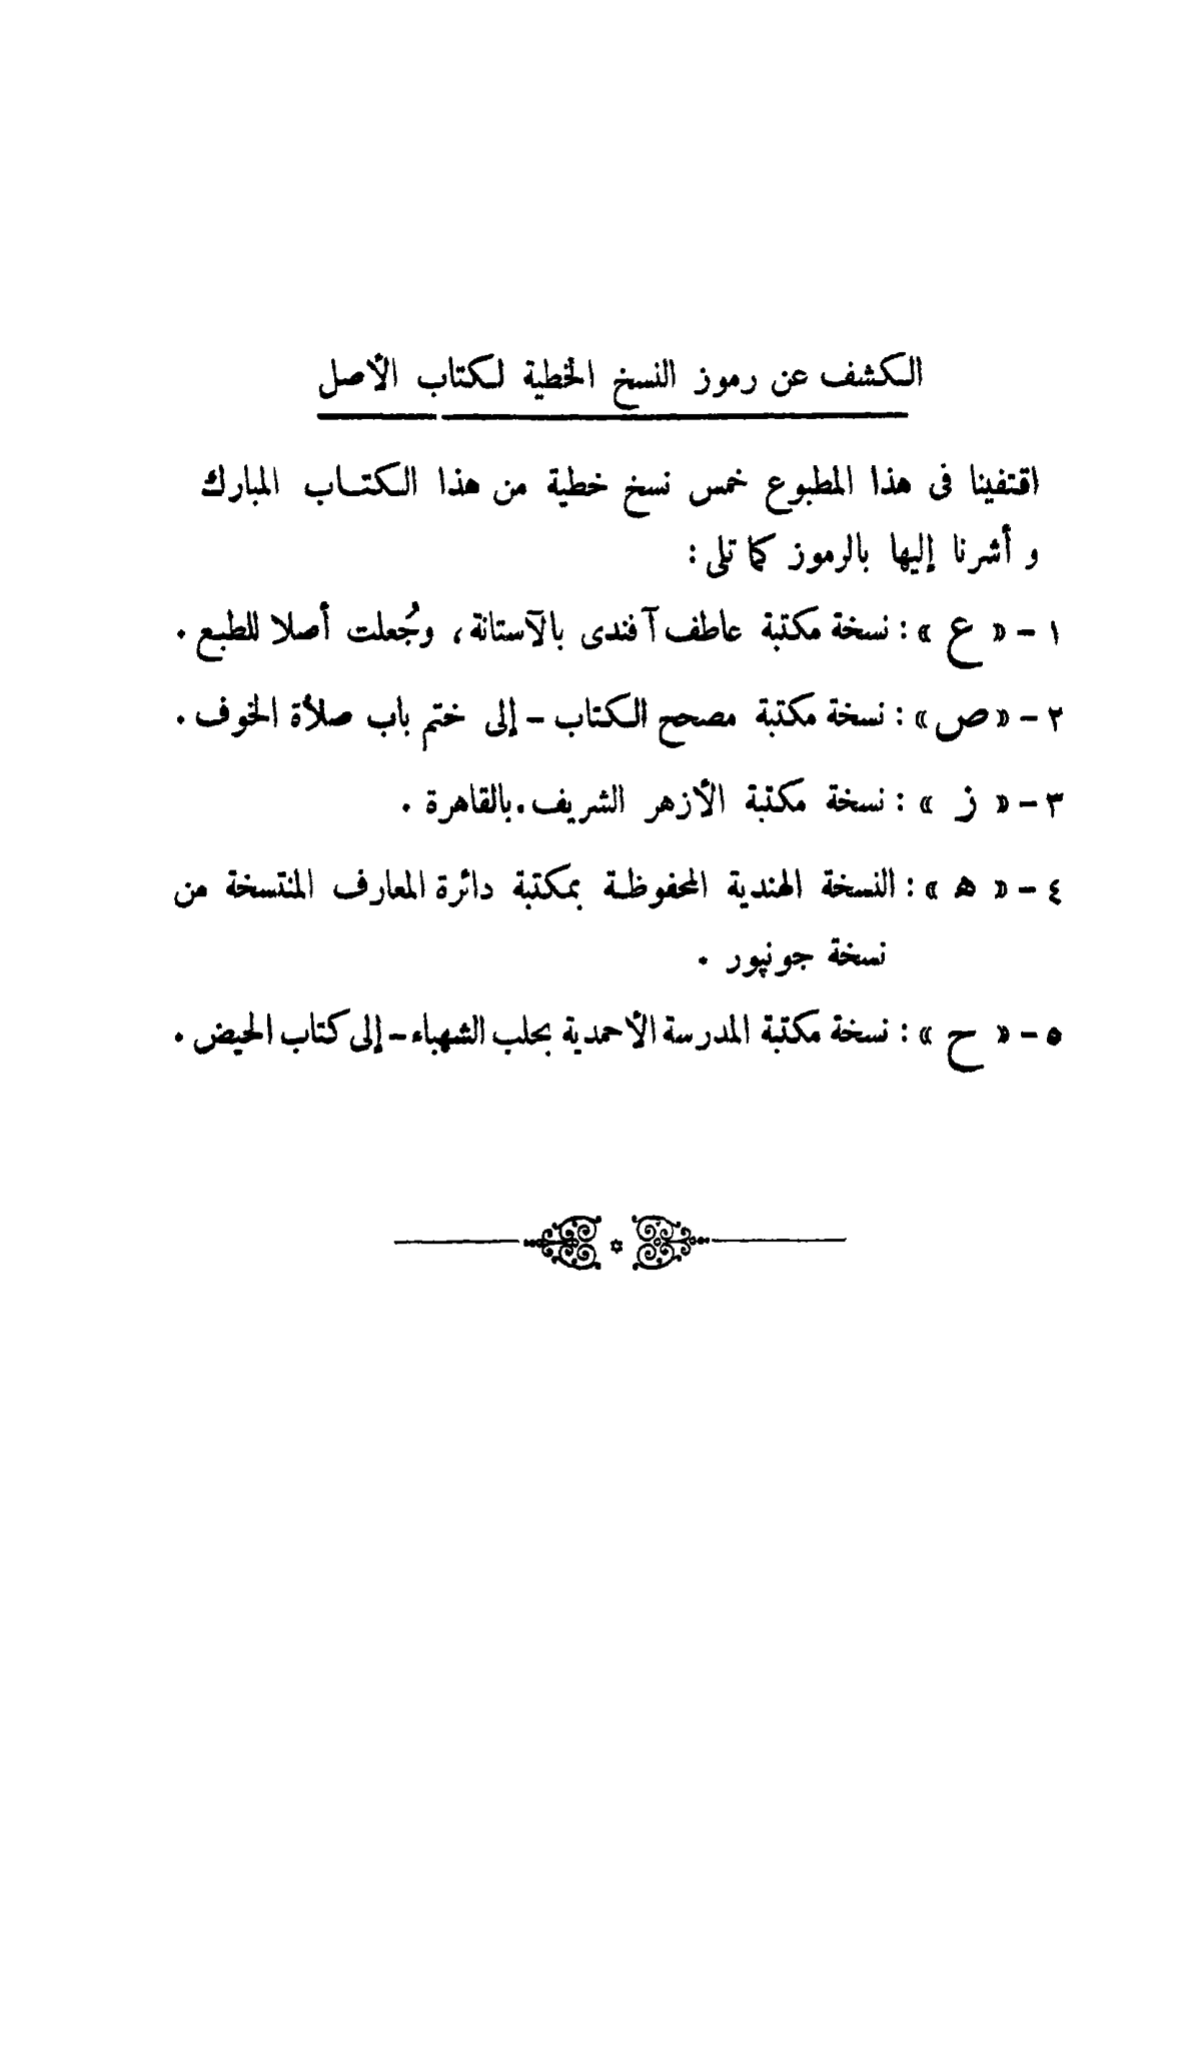 الكشف عن رموز النسخ الخطية لكتاب الأصل
اقتفينا فى هذا المطبوع خمس نسخ خطية من هذا الكتاب المبارك
و أشرنا إليها بالرموز كما تلى :
١ - « ع » : نسخة مكتبة عاطف آفندى بالآستانة ، وجُعلت أصلا للطبع .
٢ - « ص » : نسخة مكتبة مصحح الكتاب - إلى ختم باب صلاة الخوف .
٣ - « ز » : نسخة مكتبة الأزهر الشريف . بالقاهرة .
٤ - « ه » : النسخة الهندية المحفوظة بمكتبة دائرة المعارف المنتسخة من
نسخة جونپور .
٥ - « ح » : نسخة مكتبة المدرسة الأحمدية بحلب الشهباء - إلى كتاب الحيض .